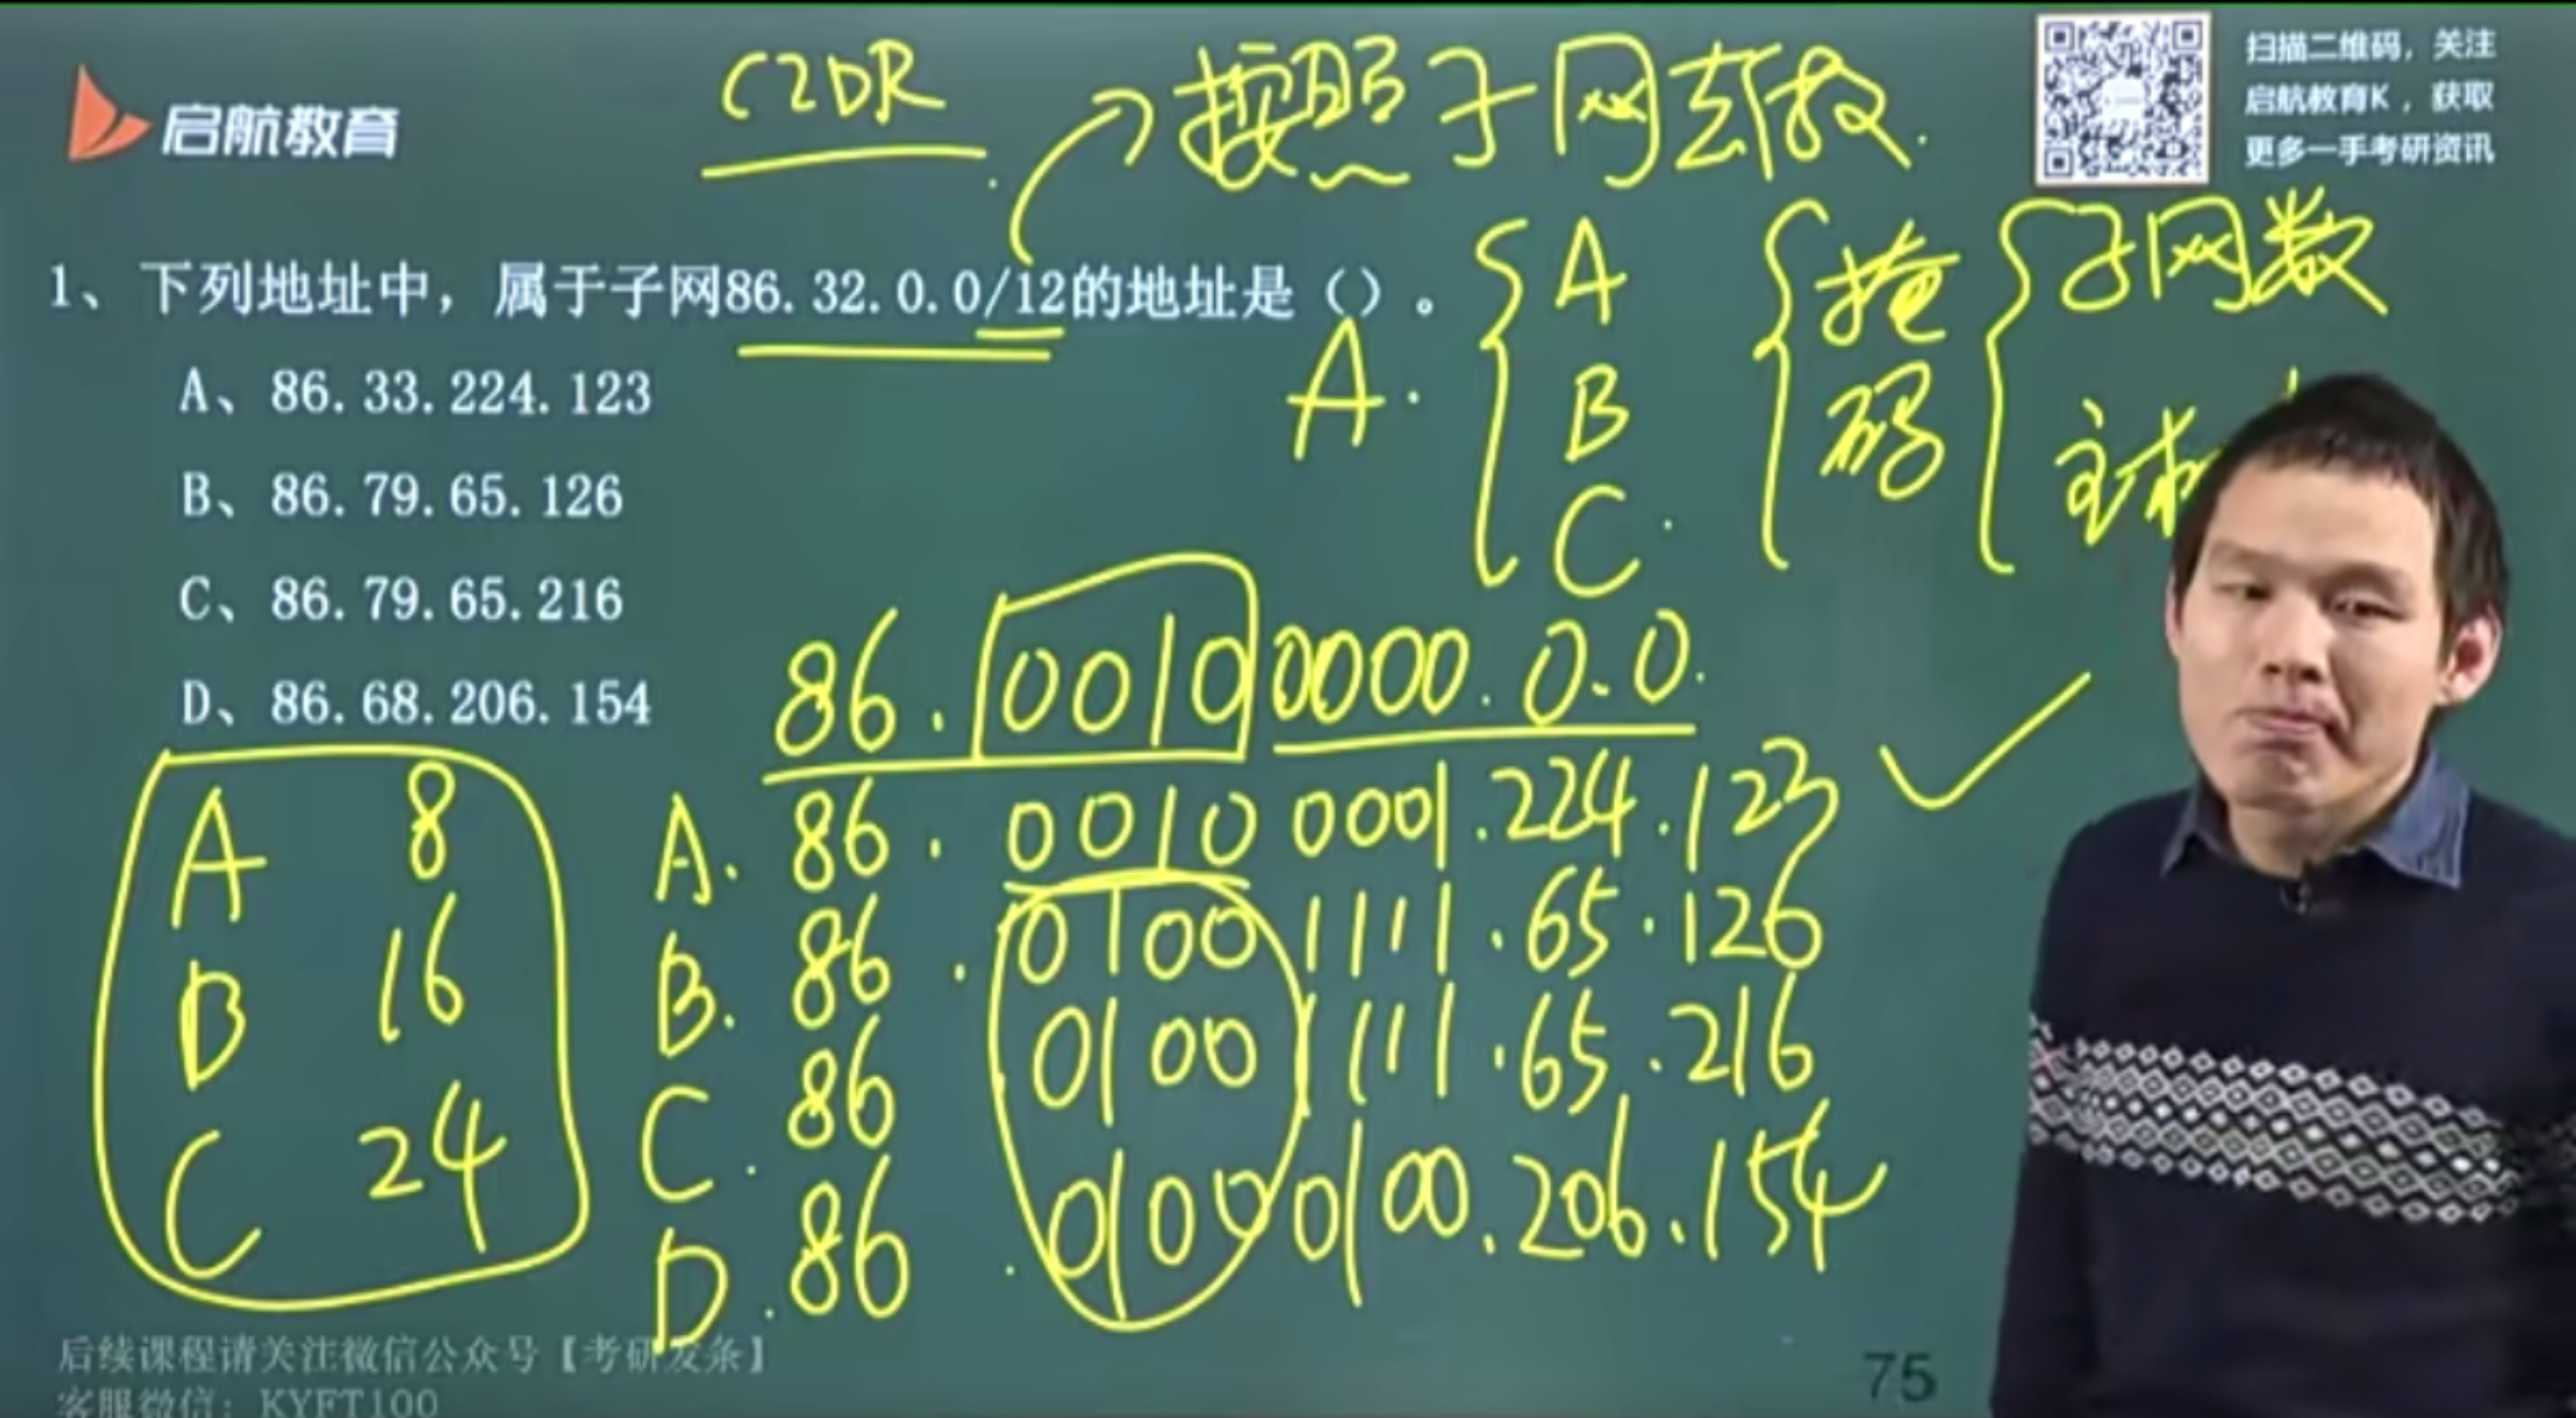 CIDR
按照子网去做.
启航教育
扫描二维码，关注
启航教育K，获取
更多一手考研资讯
1、下列地址中，属于子网86.32.0.0/12的地址是（）。
A.
A
B
C.
掩
码
子网数
主
A、86.33.224.123
B、86.79.65.126
C、86.79.65.216
D、86.68.206.154
86.0010 0000.0.0.
A 8
B 16
C 24
A. 86.0010 0001.224.123
B. 86.0100 1111.65.126
C. 86 0100 1111.65.216
D. 86.0100 0100.206.154
后续课程请关注微信公众号【考研发条】
客服微信：KYFT100
75